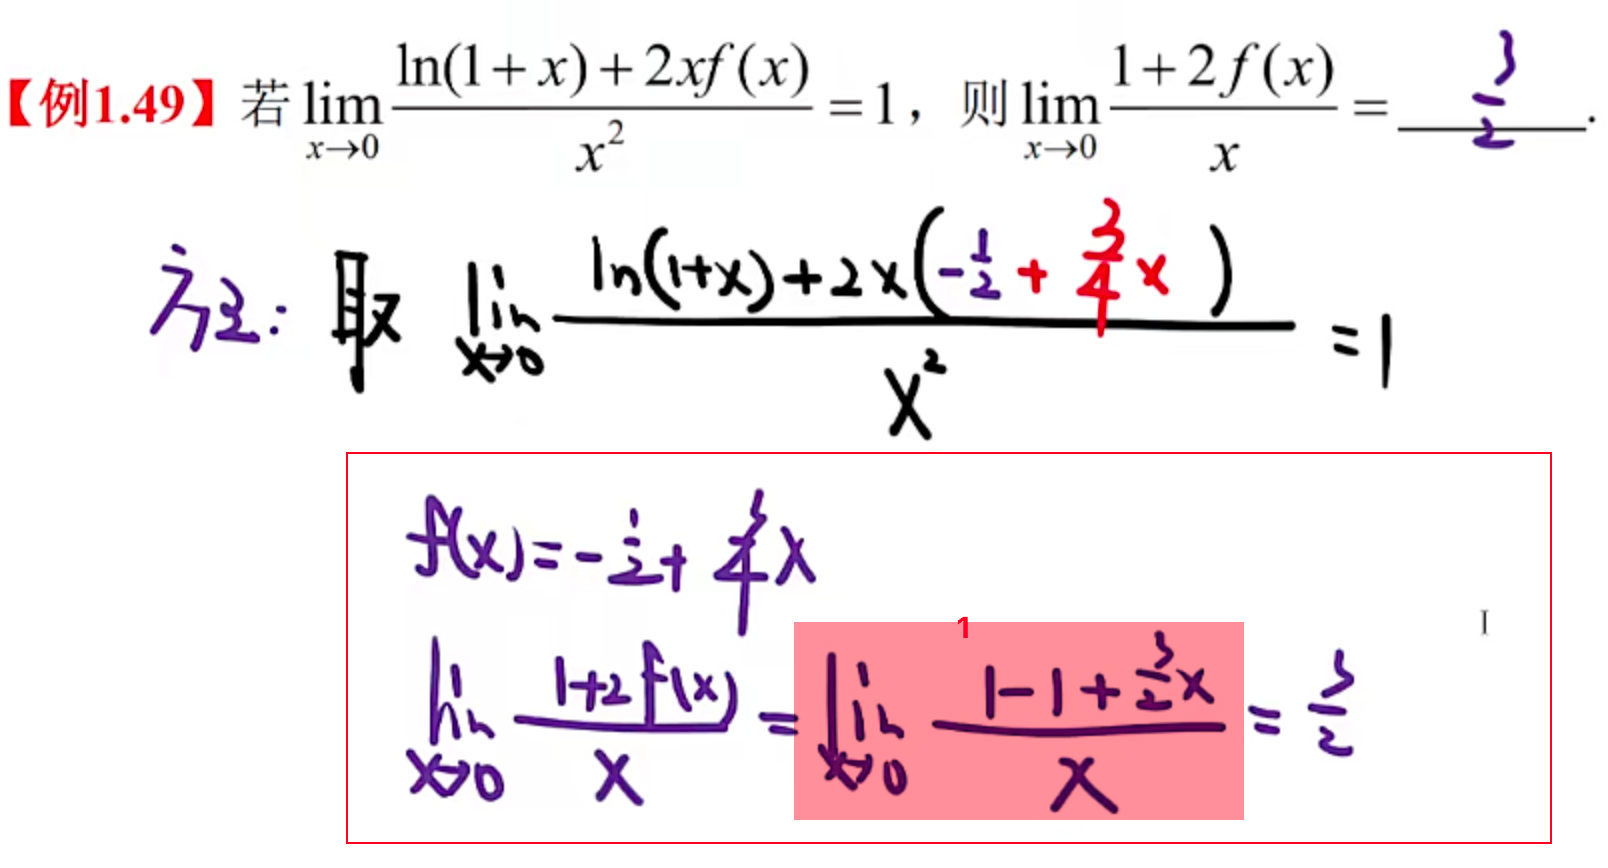 【例1.49】若 lim_{x→0} (ln(1+x)+2xf(x))/x² = 1，则 lim_{x→0} (1+2f(x))/x = 3/2.
方法2: 取 lim_{x→0} (ln(1+x)+2x(-1/2+3/4x))/x² = 1
f(x)=-1/2+3/4x
1
lim_{x→0} (1+2f(x))/x = lim_{x→0} (1-1+3/2x)/x = 3/2